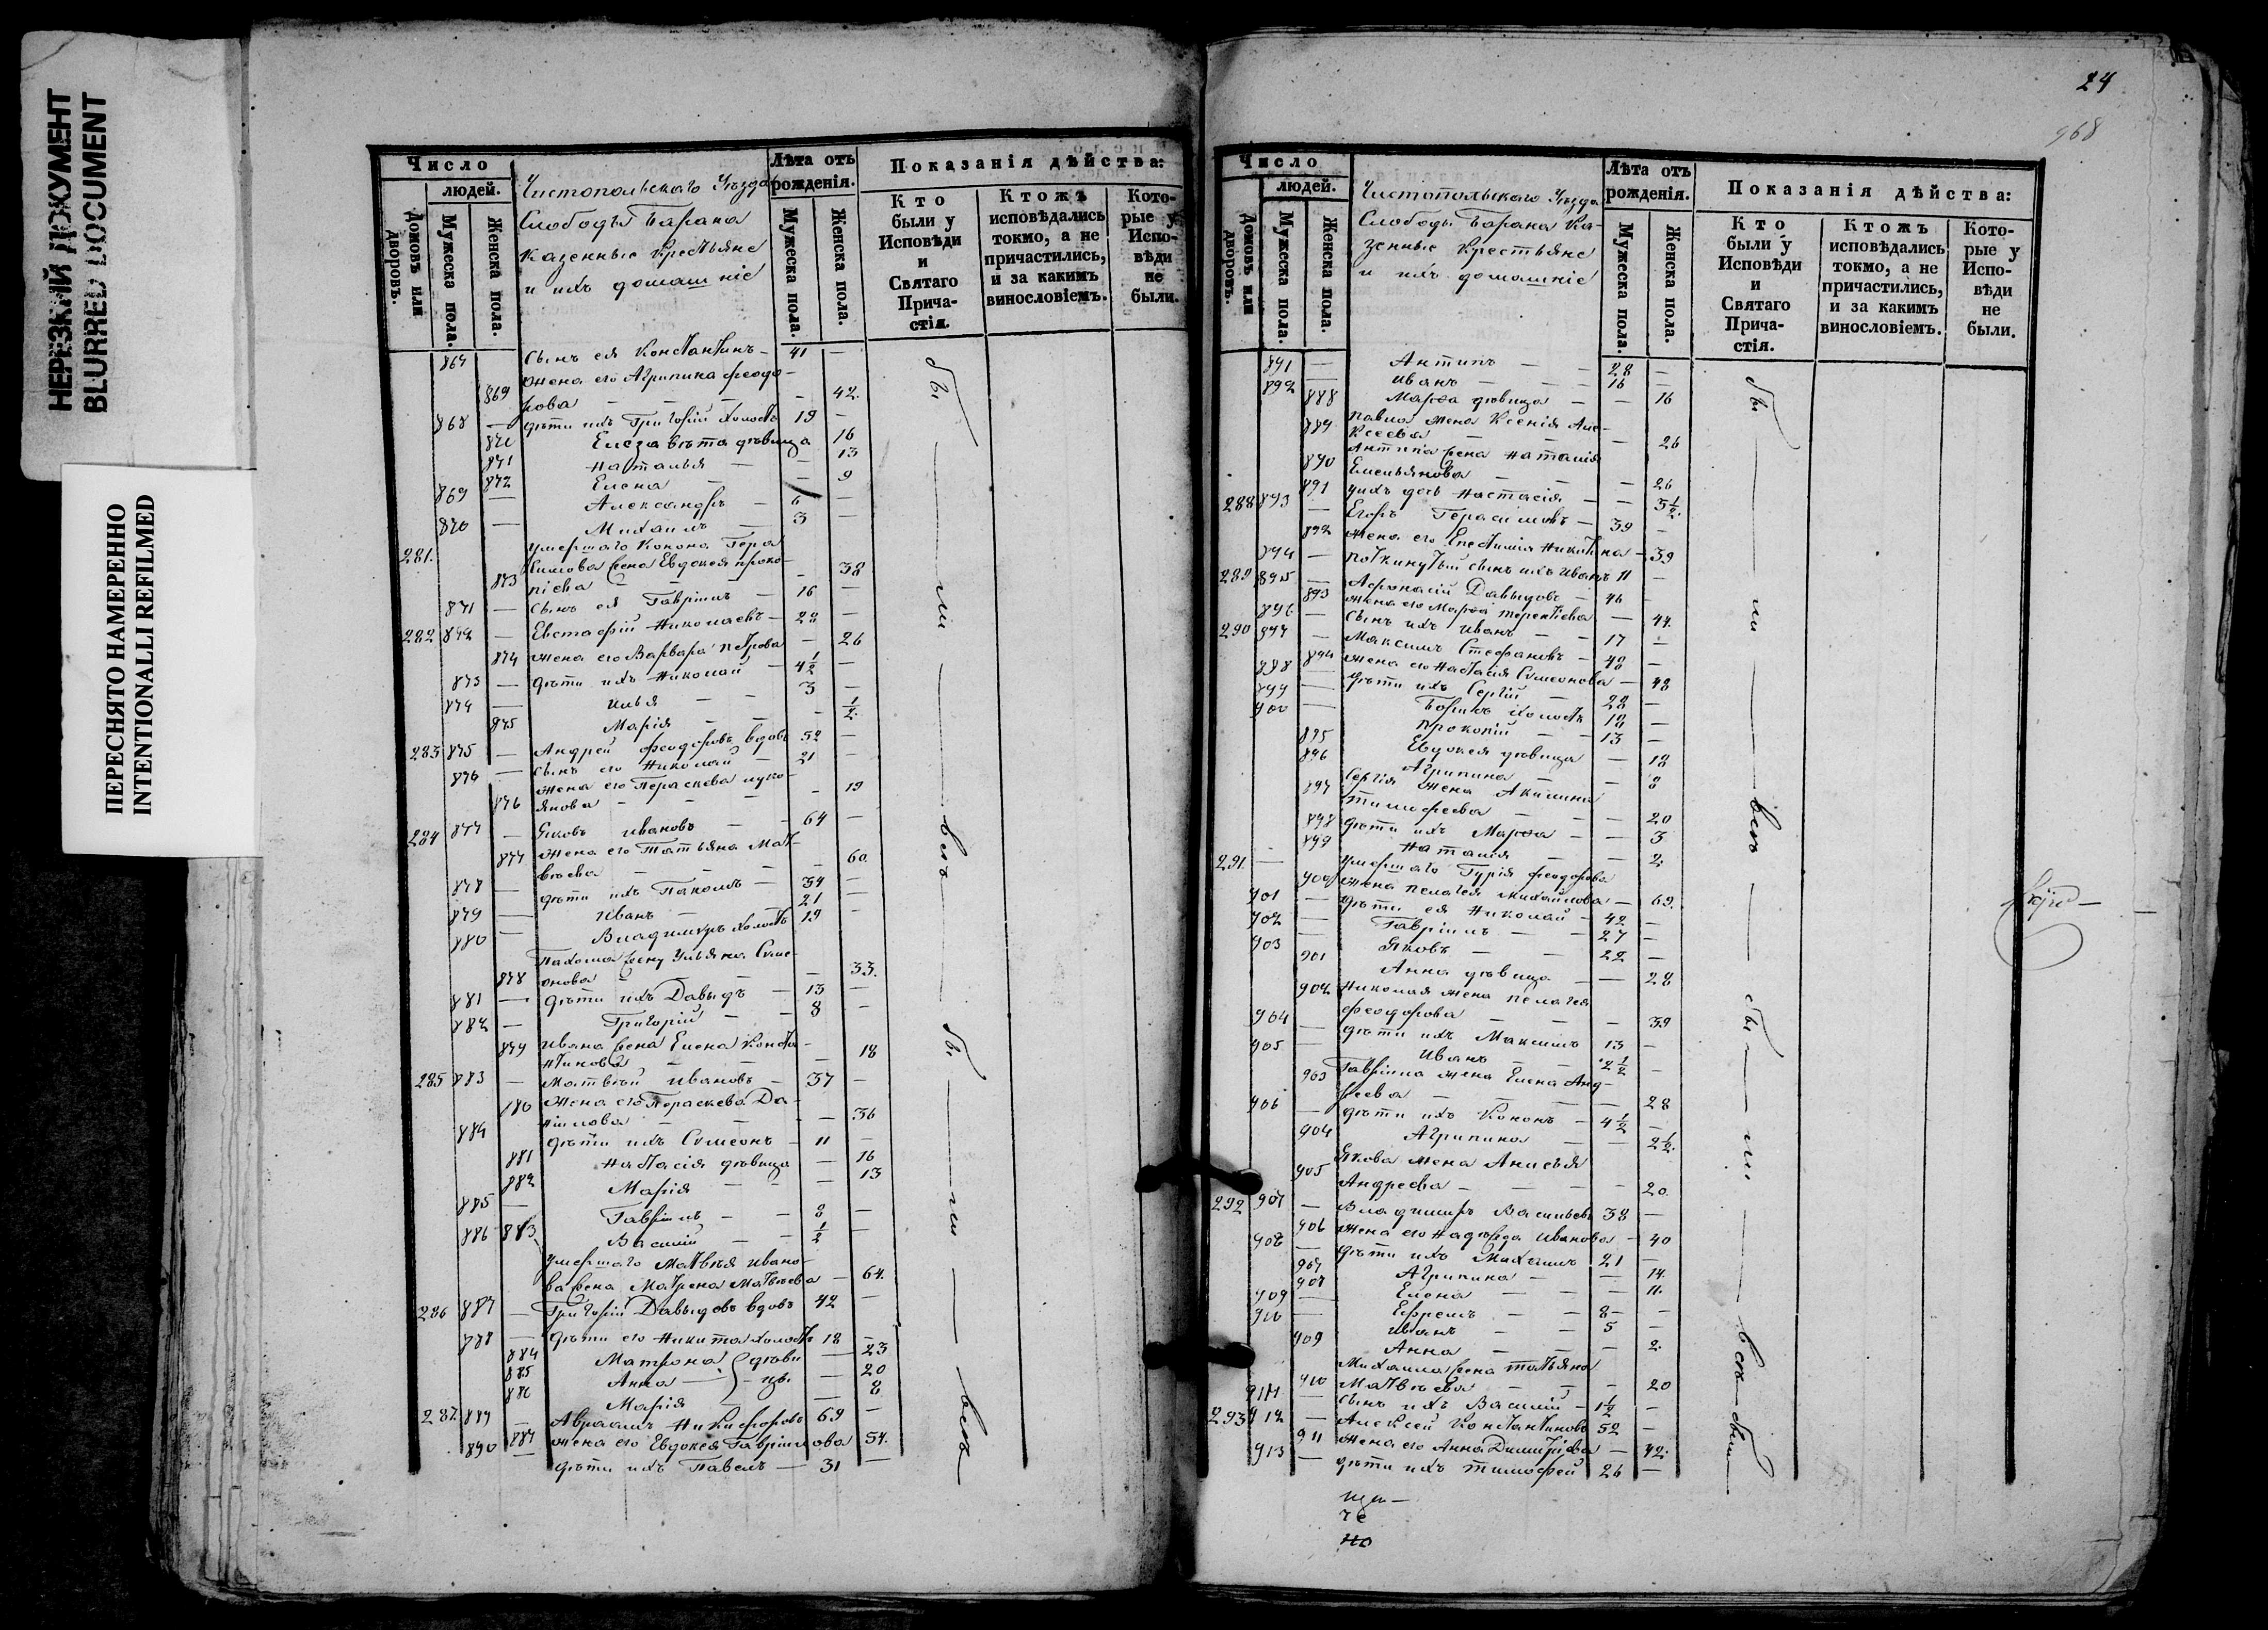 НЕРЕЗКИЙ ДОКУМЕНТ
BLURRED DOCUMENT
ПЕРЕСНЯТО НАМЕРЕННО
INTENTIONALLI REFILMED
Число
людей.
Домовъ или дворовъ.
Мужеска пола.
Женска пола.
Чистопольскаго Уѣзда
Слободы Барана
казенные крестьяне
и ихъ домашніе
Лѣта отъ рожденія.
Мужеска пола.
Женска пола.
Показанія дѣйства:
Кто были у Исповѣди и Святаго Прича-стія.
Ктожъ исповѣдались токмо, а не причастились, и за какимъ винословіемъ.
Кото-рые у Испо-вѣди не были.
867 Сынъ ея Константинъ - 41 -
Жена его Агрипина Феодо-
869 рова - - - - 42.
868 - дѣти ихъ Григорій холостъ 19 -
870 Елезавета дѣвица 16
871 Наталья - - 13
872 Елена - - 9
869 - Александръ - 6 -
870 - Михаилъ - 3 -
281. умершаго Конона Гера
симова жена Евдокея Проко-
873 піева - - - 38
871 - Сынъ ея Гавріилъ - 16 -
282 872 - Евстафій Николаевъ - 28 -
874 жена его Варвара Петрова - 26
873 - дѣти ихъ Николай - 4½ -
874 - Илья - - 3 -
875 Марія - - - ½.
283 875 - Андрей Феодоровъ вдовъ 52 -
876 - Сынъ его Николай - 21 -
жена его Параскева Луко-
876 янова - - - - 19
284 877 - Яковъ Ивановъ - - 64 -
877 жена его Татьяна Мат-
вѣева - - - - 60.
878 - дѣти ихъ Пахомъ - 34 -
879 - Иванъ - - 21 -
880 - Владимиръ холостъ 19 -
Пахома жену Ульяна Симе-
878 онова - - - 33.
881 - дѣти ихъ Давыдъ - 13 -
882 - Григорій - - 8 -
879 Ивана жена Елена Конста-
нтинова - - - 18
285 883 - Матвѣй Ивановъ - 37 -
880 жена его Параскева Да-
ніилова - - - 36
884 дѣти ихъ Симеонъ - 11 -
881 Настасія дѣвица - 16
882 Марія - - - 13
885 - Гавріилъ - - 8 -
886 883 - Василій - - ½ -
умершаго Матвѣя Ивано-
ва жена Матрена Матвѣева - 64.
286 887 - Григорій Давыдовъ вдовъ 42 -
888 - дѣти его Никита холостъ 18 -
884 Матрона дѣви - 23
885 Анна - цы. - 20
886 Марія - - 8
287 889 - Авраамъ Никифоровъ 69 -
887 жена его Евдокея Гавріилова 54.
890 - дѣти ихъ Павелъ - 31 -
бы
ли
всѣ
бы
ли
всѣ
24
968
Число
людей.
Домовъ или дворовъ.
Мужеска пола.
Женска пола.
Чистопольскаго Уѣзда
Слободы Барана Ка-
зенные Крестьяне
и ихъ домашніе
Лѣта отъ рожденія.
Мужеска пола.
Женска пола.
Показанія дѣйства:
Кто были у Исповѣди и Святаго Прича-стія.
Ктожъ исповѣдались токмо, а не причастились, и за какимъ винословіемъ.
Кото-рые у Испо-вѣди не были.
891 - Антипъ - - 28 -
892 - Иванъ - - 16 -
888 Марфа дѣвица - - 16
889 Павла жена Ксенія Але-
ксеева - - - 26
Антипа жена Наталія
890 Емельянова - - - 26
891 у нихъ дочь Настасія - - 3½.
288 893 - Егоръ Герасимовъ - 39 -
892 жена его Епистимія Никитина - 39
894 - Поткинутый сынъ ихъ Иванъ 11 -
289 895 - Афонасій Давыдовъ - 46 -
893 жена его Марфа Терентіева - 44.
896 - Сынъ ихъ Иванъ - - 17 -
290 897 - Максимъ Стефановъ - 48 -
894 жена его Настасія Симеонова - 48
898 - дѣти ихъ Сергій - 28 -
899 - Борисъ холостъ 18 -
900 - Прокопій - - 13 -
895 Евдокея дѣвица - 18
896 Агрипина - - 8
Сергія жена Акилина
897 Тимофеева - - - 20
898 дѣти ихъ Марфа - - 3
899 Наталія - - 2.
291. - умершаго Гурія Феодорова
900 жена Пелагея Михайлова - 69.
901 - дѣти ея Николай - 42 -
902 - Гавріилъ - - 27 -
903 - Яковъ - - 22 -
901 Анна дѣвица - - 28
902 Николая жена Пелагея
Феодорова - - - 39
904 - дѣти ихъ Максимъ 13 -
905 - Иванъ - - 2½ -
903 Гавріила жена Елена Анд-
реева - - - 28
906 - дѣти ихъ Кононъ - 4½ -
904 Агрипина - - 2½.
Якова жена Анисья
905 Андреева - - - 20.
292 907 - Владимиръ Васильевъ 38 -
906 жена его Надежда Иванова - 40
908 - дѣти ихъ Михаилъ 21 -
907 Агрипина - - 14.
908 Елена - - - 11.
909 - Ефремъ - - 8 -
910 - Иванъ - - 5 -
909 Анна - - - 2.
Михаила жена Татьяна
910 Матвѣева - - - 20
911 - сынъ ихъ Василій - 1½ -
293 912 - Алексѣй Константиновъ 52 -
911 жена его Анна Димитріева - 42.
913 - дѣти ихъ Тимофей 26 -
бы
ли
всѣ
бы
ли
всѣ
были